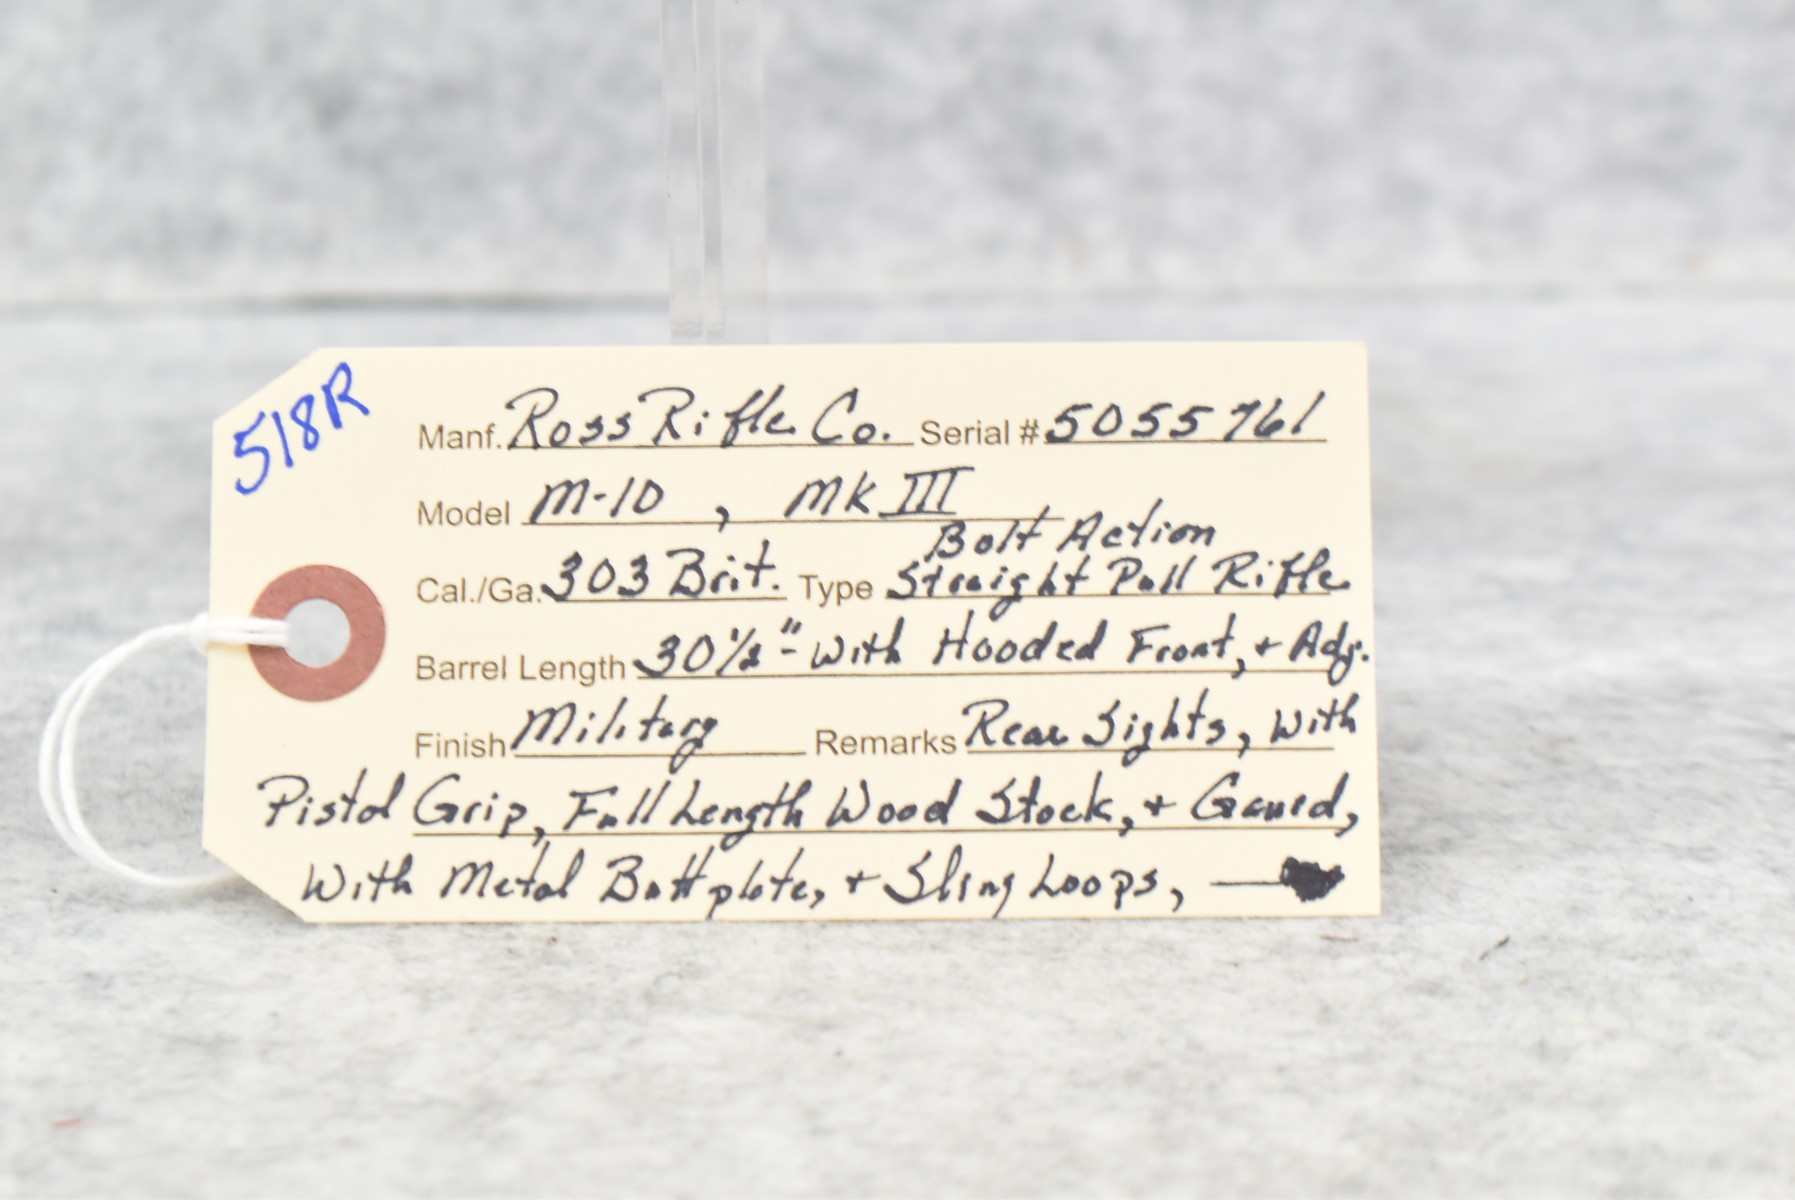 518R
Manf. Ross Rifle Co. Serial # 5055761
Model M-10 , MK III
Bolt Action
Cal./Ga. 303 Brit. Type Straight Pull Rifle
Barrel Length 30 1/2" - With Hooded Front, + Adj.
Finish Military Remarks Rear Sights, With
Pistol Grip, Full Length Wood Stock, + Gaurd,
With Metal Buttplate, + Sling Loops,